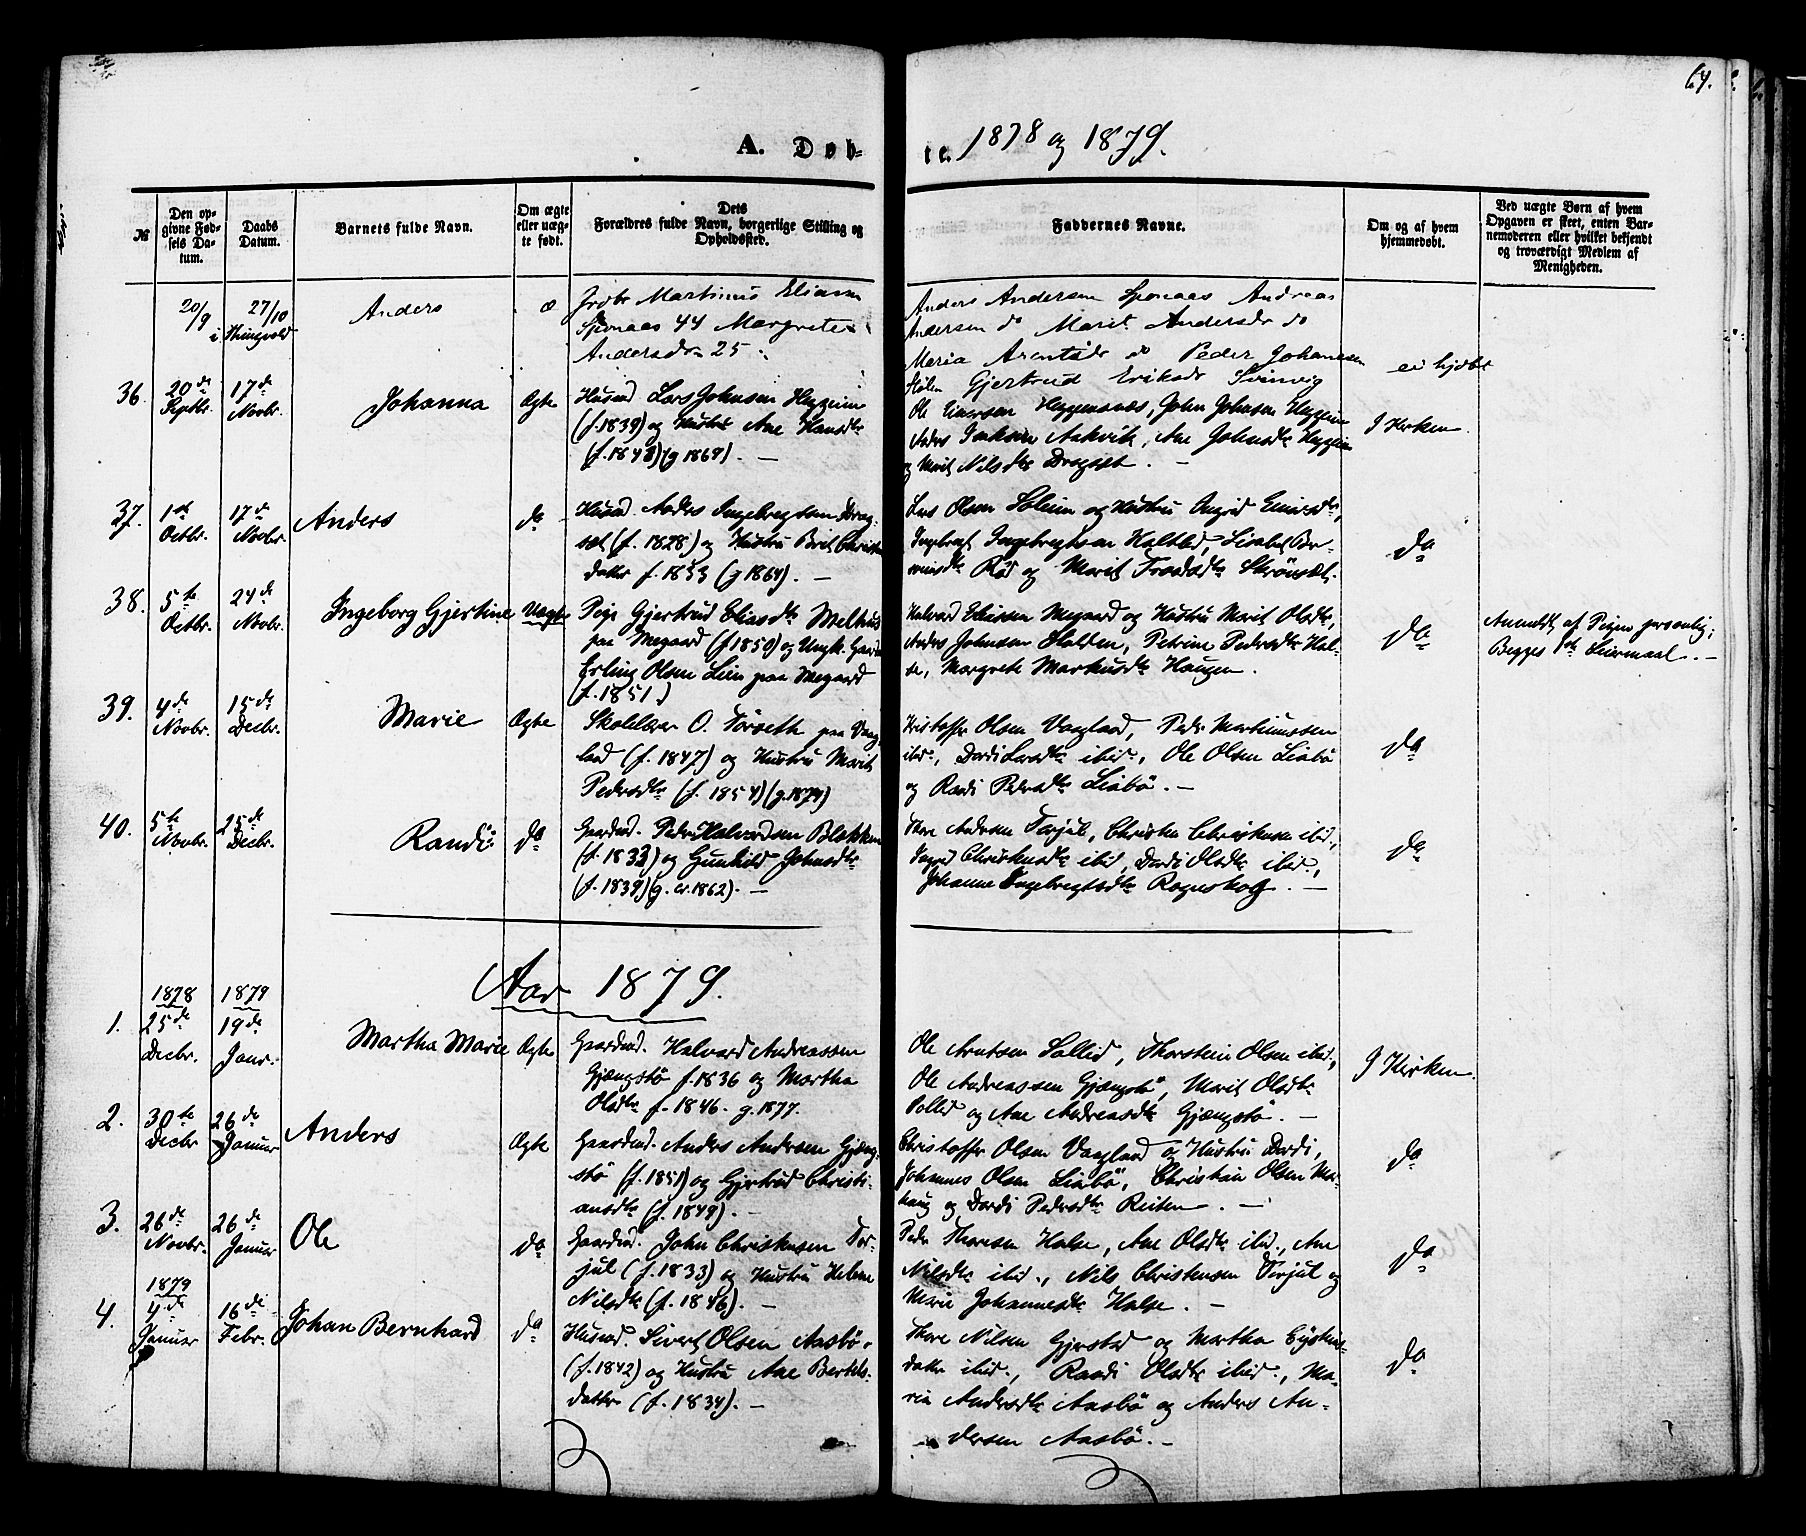 64.
A. Døb-
te. 1878 og 1879.
№
Den op-
givne Fød-
sels Da-
tum.
Daabs
Datum.
Barnets fulde Navn.
Om ægte
eller uæg-
te født.
Dets
Forældres fulde Navn, borgerlige Stilling og
Opholdssted.
Faddernes Navne.
Om og af hvem
hjemmedøbt.
Ved uægte Børn af hvem
Opgaven er skeet, enten Bar-
nemoderen eller hvilket bekjendt
og troværdigt Medlem af
Menigheden.
20/9
27/10
i Thingvold
Anders
æ
Martinus Eliasen
Sponaas 44 Margrete
Andersdr 25
Anders Andersen Sponaas Andreas
Andersen do Marit Andersdr do
Maria Arentsdr do Peder Johannesen
Gjertrud Eriksdr Svinvig
ei hjdbt
36.
20de
Septbr.
17de
Novbr.
Johanna
Ægte
Husmd Lars Johnsen Heggeim
(f. 1839) og Hustru Ane Hansdtr
(f. 1843) (g 1869). —
Ole Einersen Heggemsnæs, John Johnsen Heggeim
Anders Aakvik, Ane Johnsdtr Heggeim
og Marit Nilsdtr Dragset. —
I Kirken
37.
1ste
Octbr.
17de
Novbr.
Anders
do
Husmd. Anders Ingebregtsen Drag-
set (f. 1828) og Hustru Brit Christi
datter f. 1833 (g 1864). —
Lars Olsen Solem og Hustru Ingrid Einersdtr,
Ingebregt Ingebregtsen Halsbed, Lisabet Be-
Rød og Marit Skrönset.
do
38.
5te
Octbr.
24de
Novbr.
Ingeborg Gjertine
Uægte
Pige Gjertrud Eliasdtr Melhus
paa Megaard (f 1850) og Ungk. Gaardm
Erling Olsen Lien paa Megaard
(f. 1851.)
Halvard Eliassen Megaard og Hustru Marit Olsdtr,
Anders Johnsen Halden, Petrine Pedersdtr Hal-
se, Margrete Markusdtr Haugen.
do
Anmeldt af Pigen personlig;
Begges 1ste Leiermaal. —
39.
4de
Novbr.
15de
Decbr.
Marie
Ægte
Skolelærer O. Torveth paa Vaag-
land (f. 1847) og Hustru Marit
Pedersdtr (f. 1854) (g. 1874)
Kristoffer Olsen Vaagland, Peder Martinussen
ibid., Dardi Larsdtr ibid., Ole Olsen Liabö
og Randi Pedersdtr Liabö. —
do
40.
5te
Novbr.
25de
Decbr.
Randi
do
Gaardmd. Peder Halvardsen Blekken
(f. 1833) og Gunhild Johnsdtr
(f. 1839) (g. ca. 1862). —
Thore Andersen Torjul, Christen Christensen ibid.,
Ingrid Christensdtr ibid, Dardi Olsdtr ibid.,
Johanne Ingebregtsdtr Rognskog. —
do
Aar 1879.
1878
1879
1.
25de
Decbr.
19de
Janr.
Martha Marie
Ægte
Gaardmd. Halvard Andreassen
Gjængstö f. 1836 og Martha
Olsdtr f. 1846. g. 1877.
Ole Arntsen Sollid, Thorstein Olsen ibid,
Ole Andreassen Gjængstö, Marit Olsdtr
Sollid og Ane Andreasdtr Gjængstö. —
I Kirken.
2.
30te
Decbr
26de
Januar
Anders
Ægte
Gaardmd. Anders Andersen Gjæng-
stö (f. 1851) og Gjertrud Christi-
ansdtr (f. 1849). —
Christoffer Olsen Vaagland og Hustru Dardi,
Johannes Olsen Liabö, Christian Olsen Mo-
haug og Dardi Pedersdtr Reiten. —
do
3.
26de
Novbr.
26de
Januar
Ole
do
Gaardmd. John Christensen Tor-
jul (f. 1833) og Hustru Helene
Nilsdtr (f. 1846). —
Peder Thoresen Halse, Ane Olsdtr ibid., Ane
Nilsdtr ibid., Nils Christensen Torjul og
Marie Johannesdtr Halse. —
do
1879
4.
4de
Januar
16de
Febr.
Johan Bernhard
do
Husmd. Sivert Olsen Aasbö
(f. 1842) og Hustru Ane Bertels-
datter (f. 1834). —
Thore Nilsen Gjersted og Martha Eystens-
datter ibid., Randi Olsdtr ibid., Ma-
rie Andersdtr Aasbö og Anders An-
dersen Aasbö. —
do